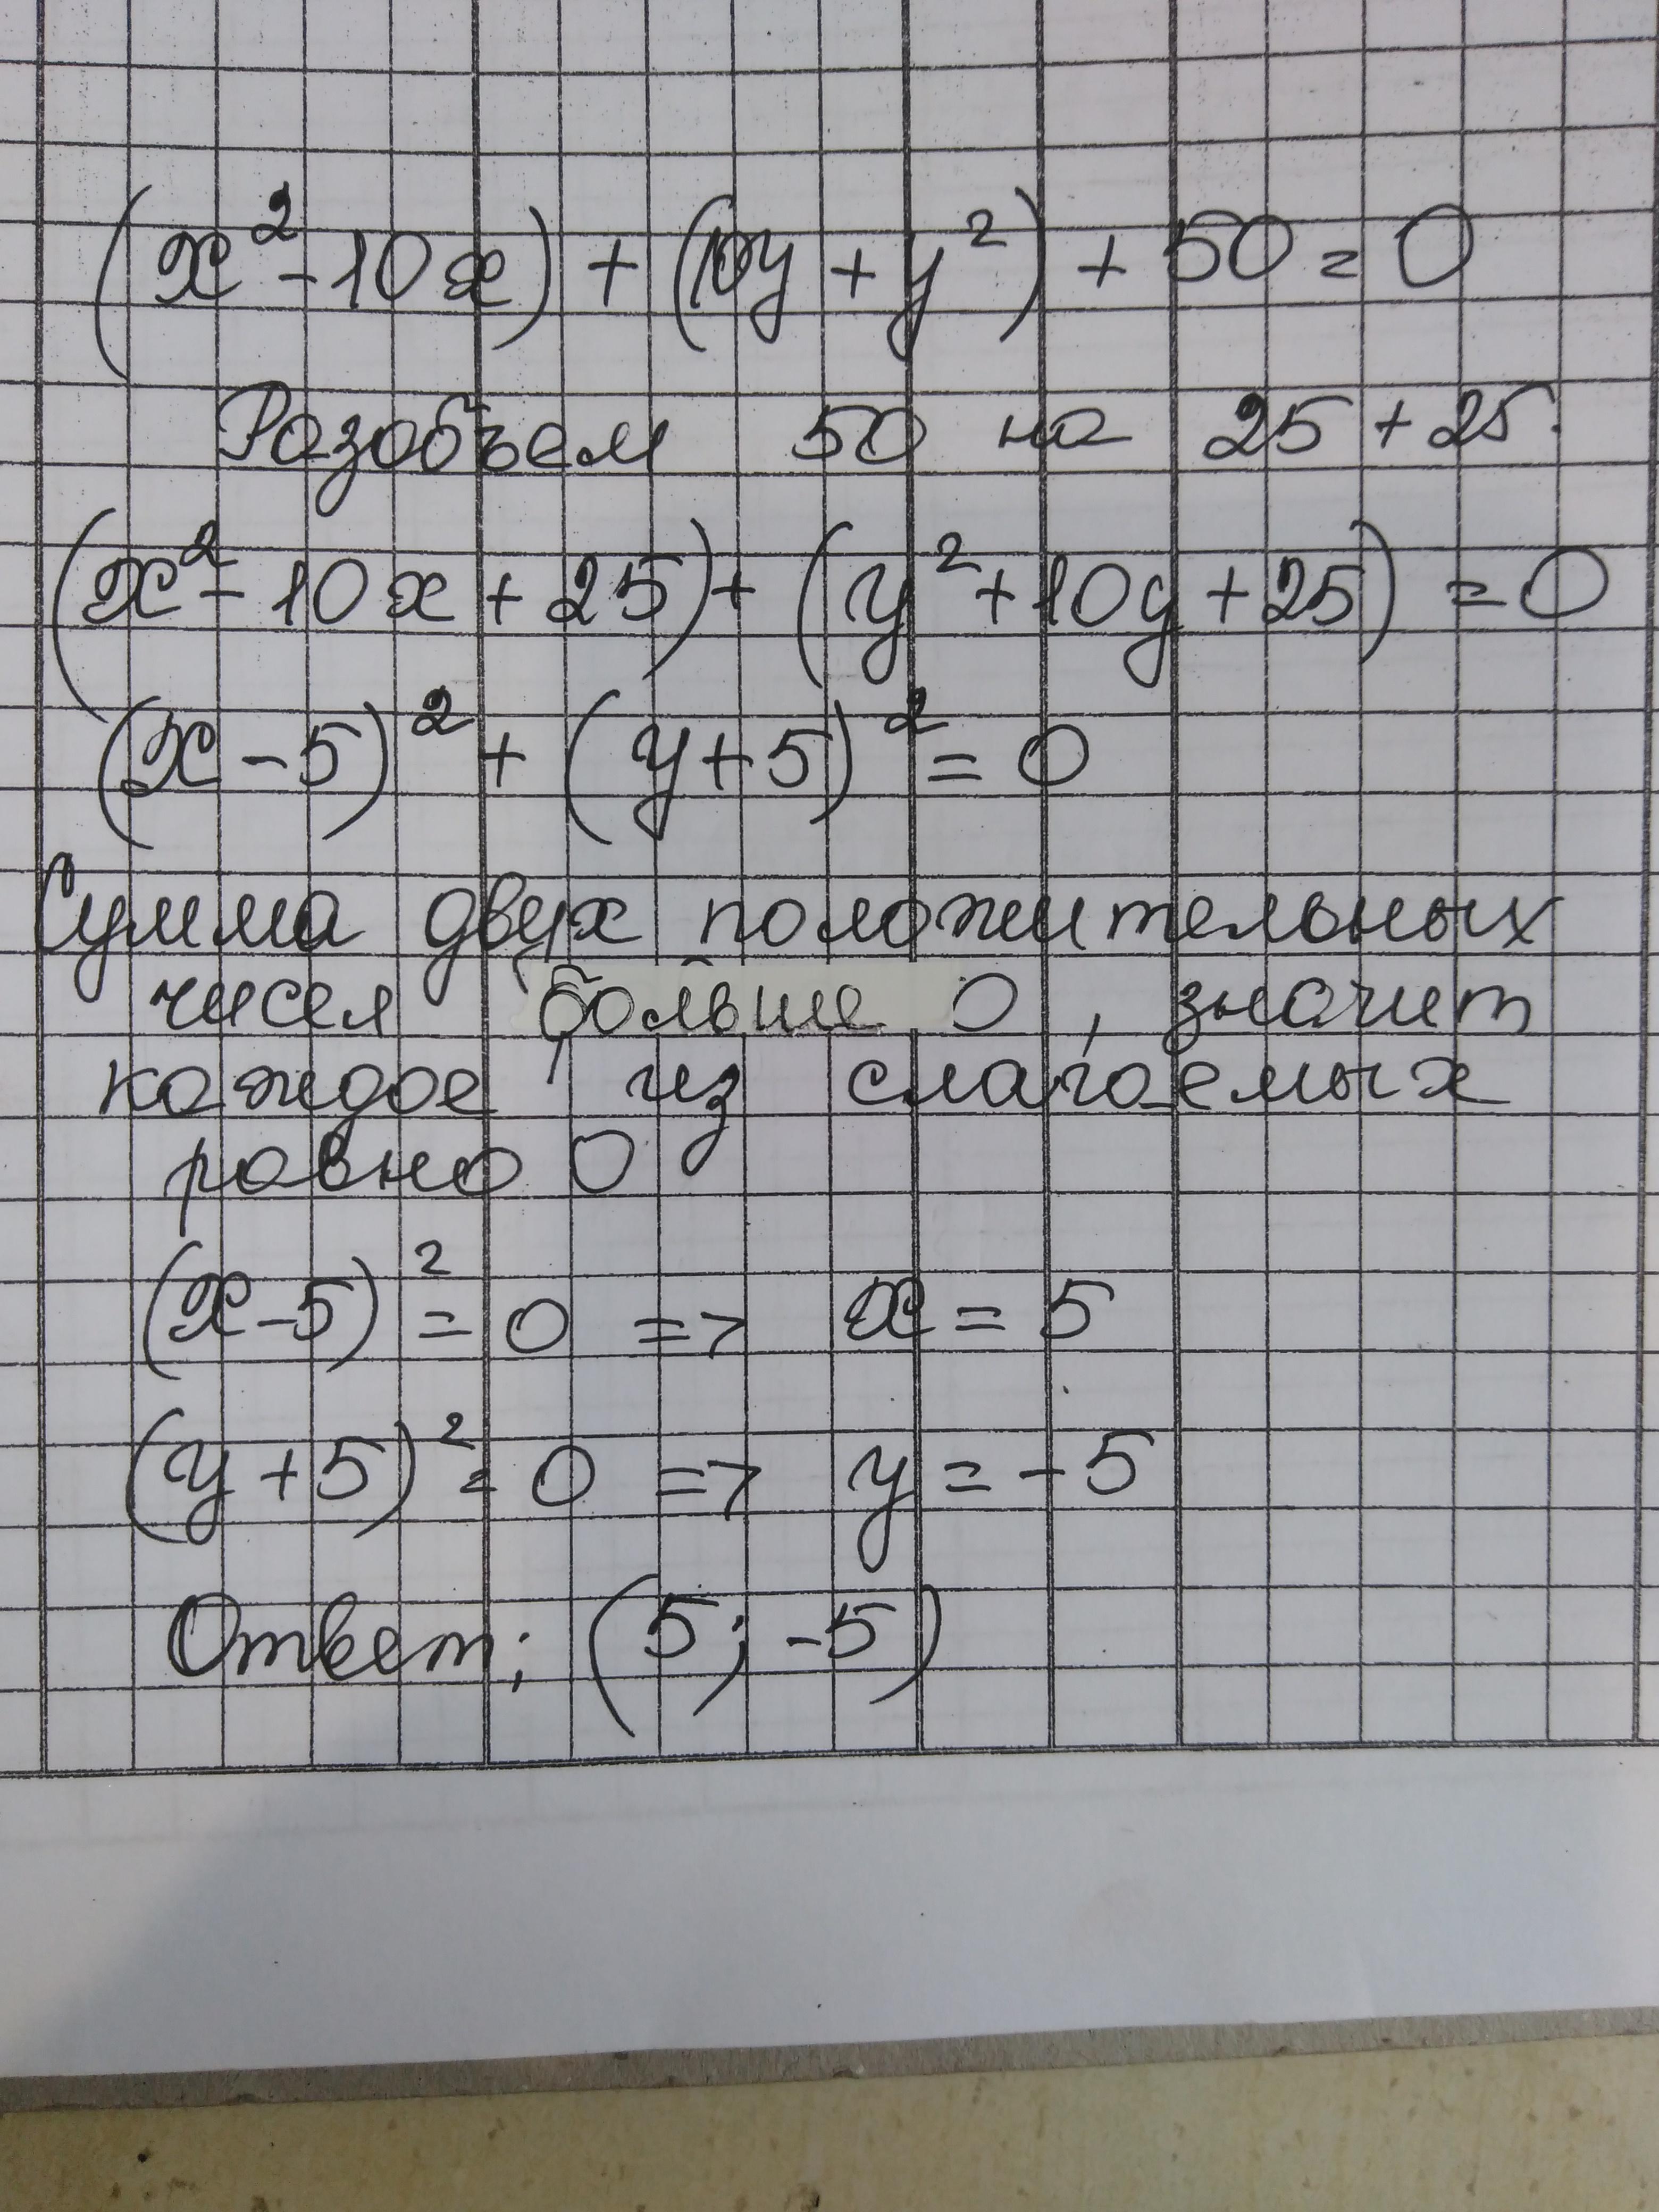 (x² - 10x) + (10y + y²) + 50 = 0
Разобъем 50 на 25 + 25.
(x² - 10x + 25) + (y² + 10y + 25) = 0
(x - 5)² + (y + 5)² = 0
Сумма двух положительных
чисел больше 0, значит
каждое из слагаемых
равно 0
(x - 5)² = 0 => x = 5
(y + 5)² = 0 => y = -5
Ответ: (5; -5)